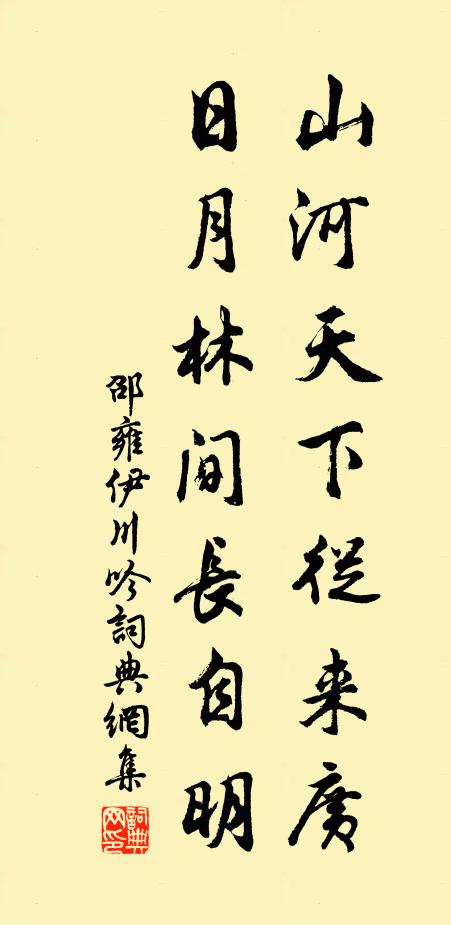 山河天下從来廣
日月林間長自明
邵雍伊川吟詞典網集
詞典网印